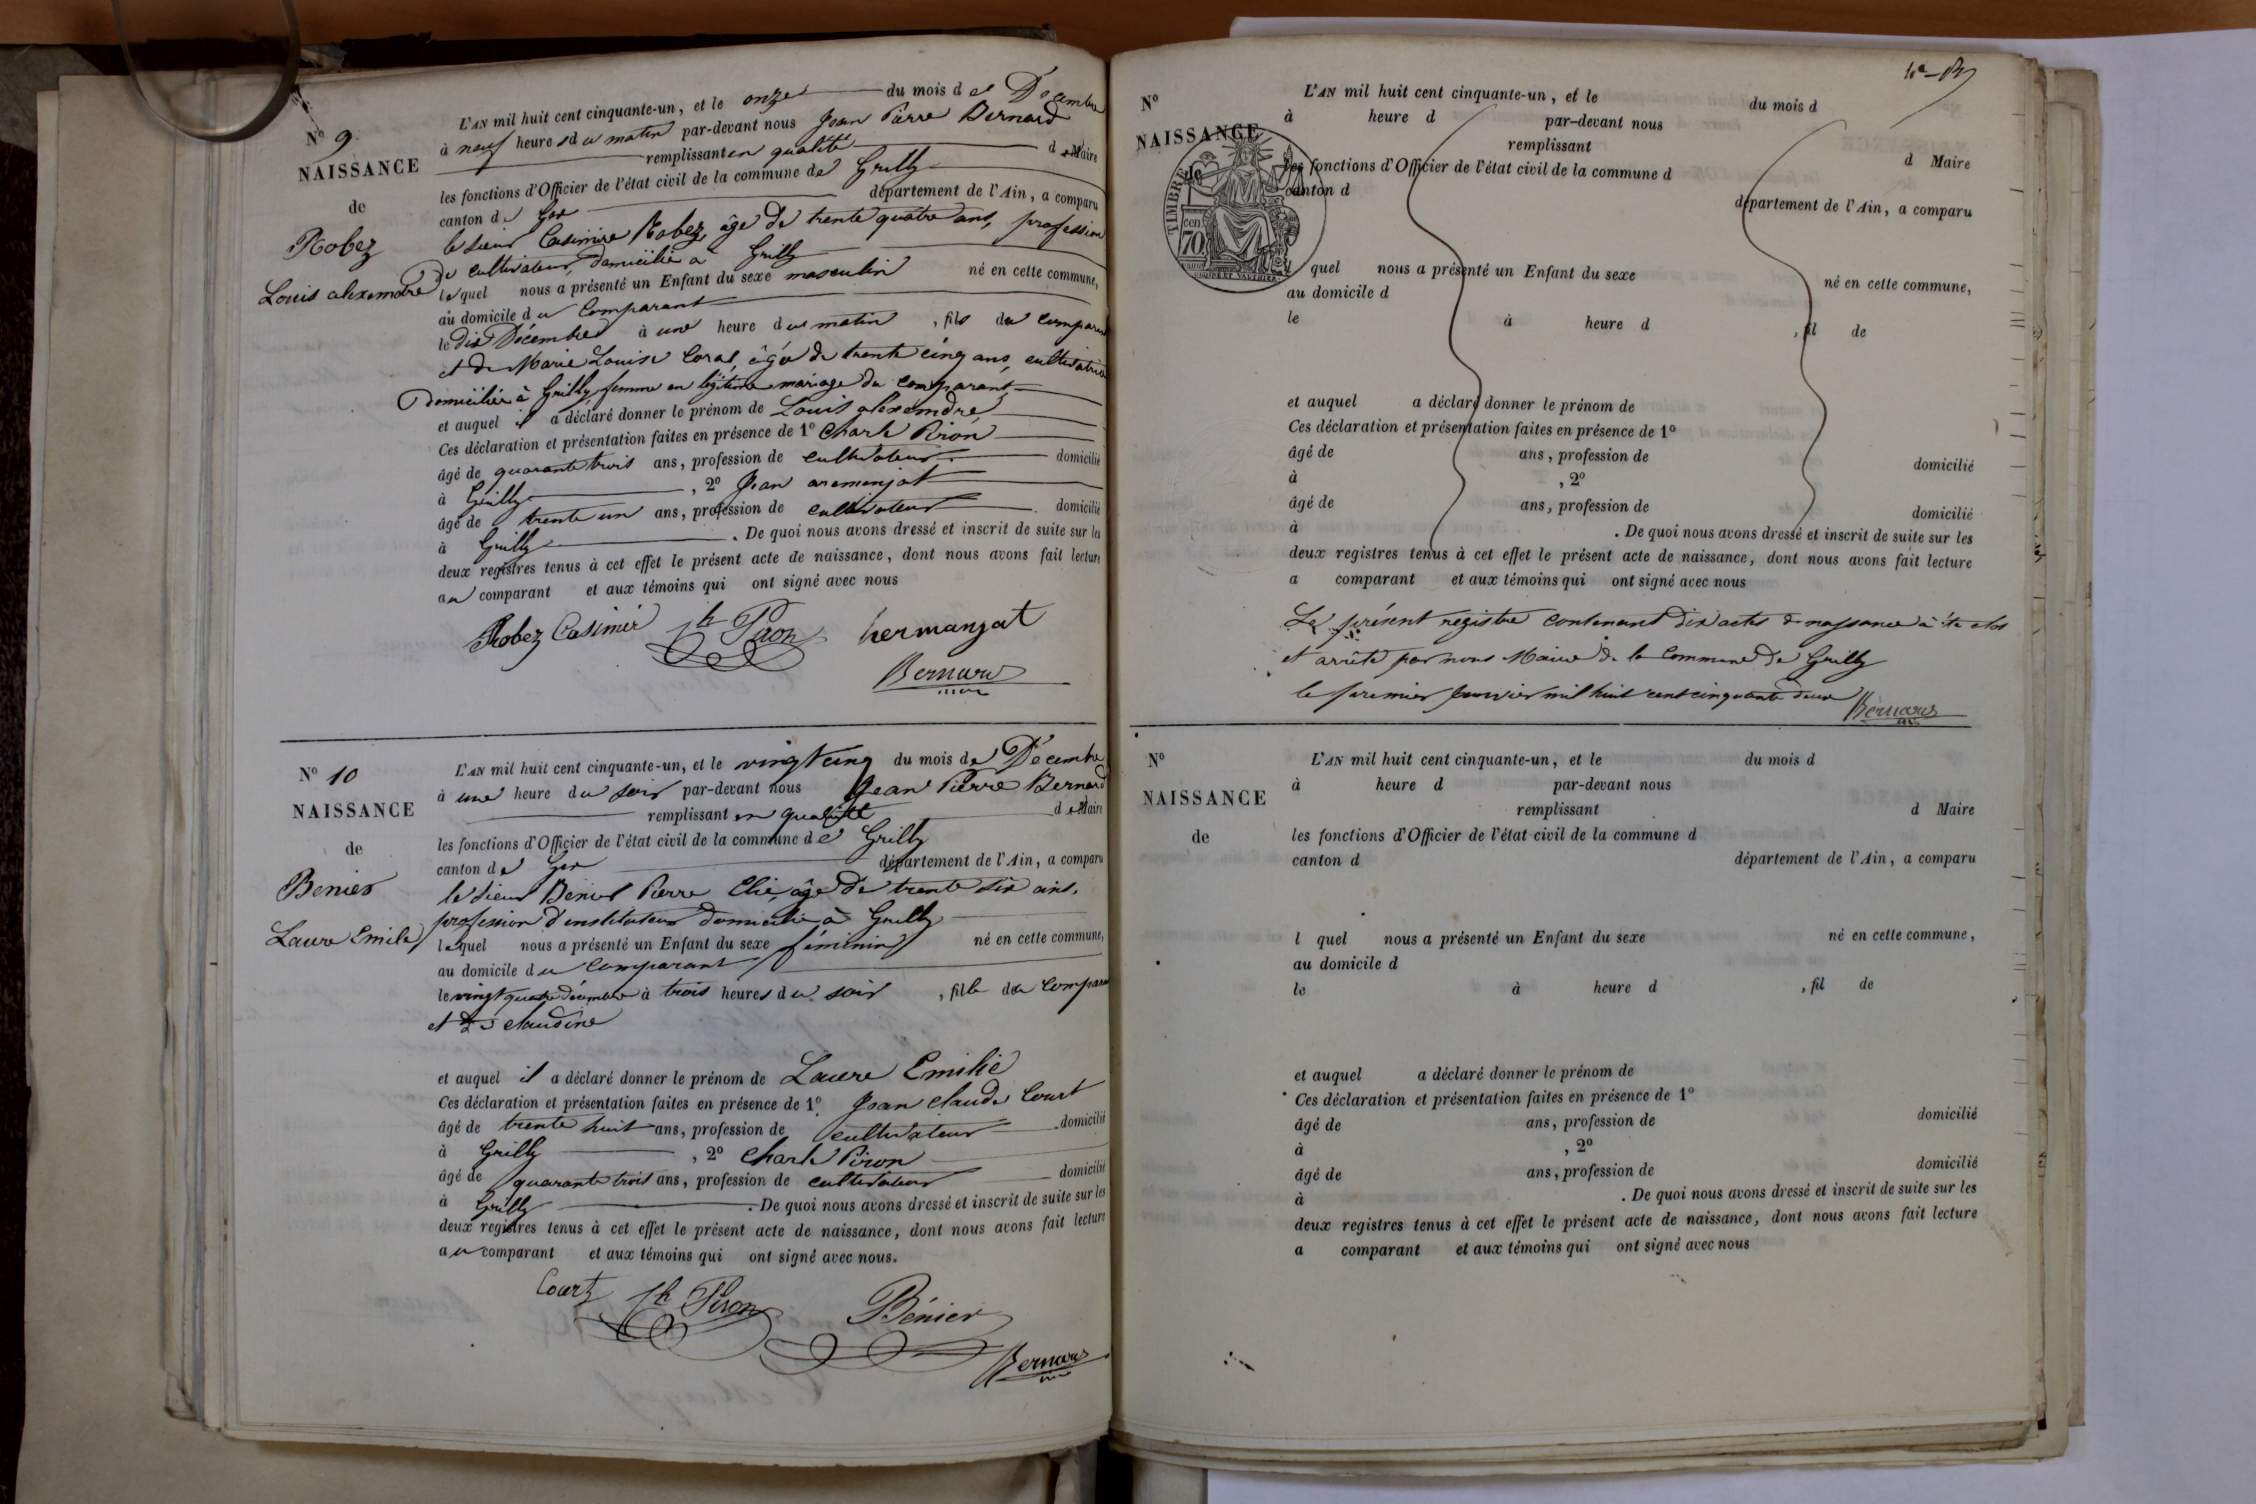 N° 9
NAISSANCE
de
Robez
Louis alexandre
L'AN mil huit cent cinquante-un, et le onze du mois de Décembre
à neuf heures du matin par-devant nous Jean Pierre Bernard
remplissant en qualité de Maire
les fonctions d'Officier de l'état civil de la commune de Grilly
canton de Gex département de l'Ain, a comparu
le sieur Casimire Robez, âgé de trente quatre ans, profession
de cultivateur, domicilié à Grilly
lequel nous a présenté un Enfant du sexe masculin né en cette commune,
au domicile du Comparant
le dix Décembre à une heure du matin, fils du compara
et de Marie Louise Coral, âgée de trente cinq ans, cultivatrice
Domiciliée à Grilly femme en légitime mariage du comparant
et auquel il a déclaré donner le prénom de Louis alexandre
Ces déclaration et présentation faites en présence de 1° Charle Piron
âgé de quarante trois ans, profession de cultivateur domicilié
à Grilly, 2° Jean aremanjat
âgé de trente un ans, profession de cultivateur domicilié
à Grilly. De quoi nous avons dressé et inscrit de suite sur les
deux registres tenus à cet effet le présent acte de naissance, dont nous avons fait lecture
au comparant et aux témoins qui ont signé avec nous
Robez Casimir Ch Piron hermanjat
Bernard
N° 10
NAISSANCE
de
Benier
Laure Emilie
L'AN mil huit cent cinquante-un, et le vingt cinq du mois de Décembre
à une heure du soir par-devant nous Jean Pierre Bernard
remplissant en qualité de Maire
les fonctions d'Officier de l'état civil de la commune de Grilly
canton de Gex département de l'Ain, a comparu
le sieur Benier Pierre Elie, âgé de trente six ans,
profession d'instituteur domicilié à Grilly
lequel nous a présenté un Enfant du sexe féminin né en cette commune,
au domicile du Comparant
le vingt quatre décembre à trois heures du soir, fille du Compara
et de claudine
et auquel il a déclaré donner le prénom de Laure Emilie
Ces déclaration et présentation faites en présence de 1° Jean claude Court
âgé de trente huit ans, profession de cultivateur domicilié
à Grilly, 2° Charle Piron
âgé de quarante trois ans, profession de cultivateur domicilié
à Grilly. De quoi nous avons dressé et inscrit de suite sur les
deux registres tenus à cet effet le présent acte de naissance, dont nous avons fait lecture
au comparant et aux témoins qui ont signé avec nous.
Court Ch Piron Bénier
Bernard
N°
NAISSANCE
de
TIMBRE
70 cen
L'AN mil huit cent cinquante-un, et le du mois d
à heure d par-devant nous
remplissant d Maire
les fonctions d'Officier de l'état civil de la commune d
canton d département de l'Ain, a comparu
l quel nous a présenté un Enfant du sexe né en cette commune,
au domicile d
le à heure d, fil de
et auquel a déclaré donner le prénom de
Ces déclaration et présentation faites en présence de 1°
âgé de ans, profession de domicilié
à, 2°
âgé de ans, profession de domicilié
à. De quoi nous avons dressé et inscrit de suite sur les
deux registres tenus à cet effet le présent acte de naissance, dont nous avons fait lecture
a comparant et aux témoins qui ont signé avec nous
Le présent registre contenant dix actes de naissance à été clos
et arrêté par nous Maire de la Commune de Grilly
le premier Janvier mil huit cent cinquante deux Bernard
N°
NAISSANCE
de
L'AN mil huit cent cinquante-un, et le du mois d
à heure d par-devant nous
remplissant d Maire
les fonctions d'Officier de l'état civil de la commune d
canton d département de l'Ain, a comparu
l quel nous a présenté un Enfant du sexe né en cette commune,
au domicile d
le à heure d, fil de
et auquel a déclaré donner le prénom de
Ces déclaration et présentation faites en présence de 1°
âgé de ans, profession de domicilié
à, 2°
âgé de ans, profession de domicilié
à. De quoi nous avons dressé et inscrit de suite sur les
deux registres tenus à cet effet le présent acte de naissance, dont nous avons fait lecture
a comparant et aux témoins qui ont signé avec nous